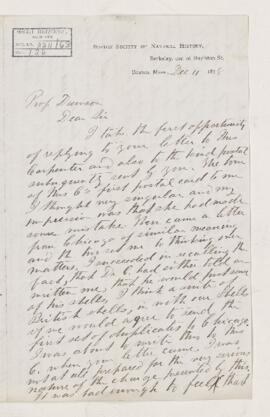 BOSTON SOCIETY OF NATURAL HISTORY,
Berkeley, cor. of Boylston St.
BOSTON, MASS., Dec 11 187
Prof Dawson
Dear Sir
I take the first opportunity
of replying to your letter to Mrs
Carpenter and also to the kind postal
subsequently sent of yours. The tone
of Mrs C's first postal card to me
I thought very singular and my
impression was that she had made
some mistake. Then came a letter
from Chicago of similar meaning
and this set me to thinking over
matters. I succeeded in recalling the
fact, that Dr C. had either told or
written me, that he would put some
of his shells, I think a suite of
British shells, in with our Shells
if we would agree to send the
first set of duplicates to Chicago.
I was about to write this to Mrs
C. when your letter came. I was
not at all prepared for the very serious
nature of the charge presented by this.
It was bad enough to feel that